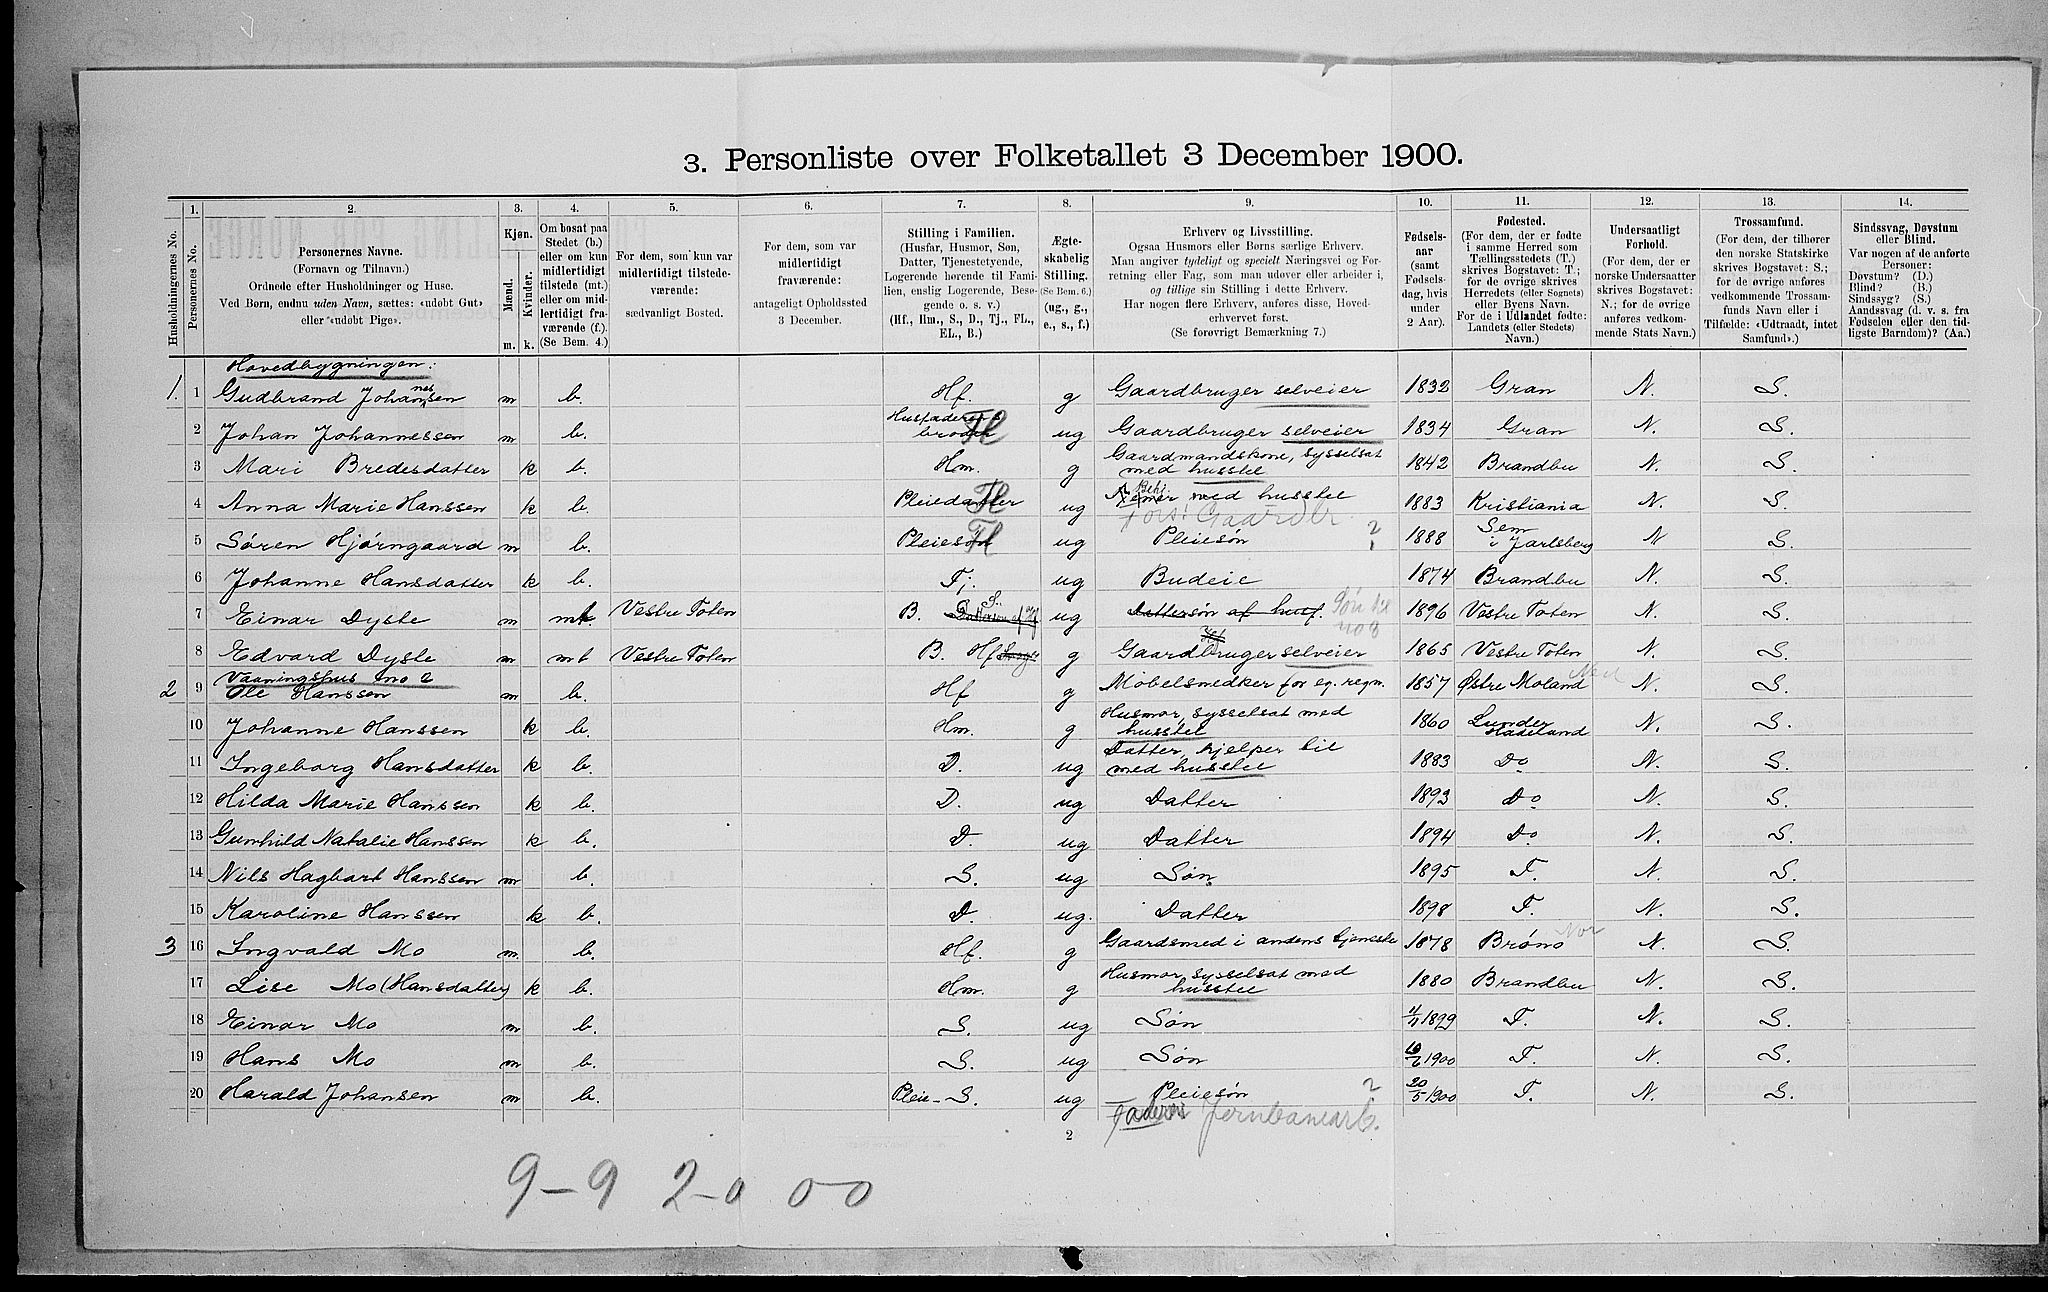 3. Personliste over Folketallet 3 December 1900.
1. 2. 3. 4. 5. 6. 7. 8. 9. 10. 11. 12. 13. 14.
Husholdningernes No.
Personernes No.
Personernes Navne.
(Fornavn og Tilnavn.)
Ordnede efter Husholdninger og Huse.
Ved Børn, endnu uden Navn, sættes: «udøbt Gut»
eller «udøbt Pige».
Kjøn.
Mænd. Kvinder.
m. k.
Om bosat paa
Stedet (b.)
eller om kun
midlertidigt
tilstede (mt.)
eller om mid-
lertidigt fra-
værende (f.).
(Se Bem. 4.)
For dem, som kun var
midlertidigt tilstede-
værende:
sædvanligt Bosted.
For dem, som var
midlertidigt
fraværende:
antageligt Opholdssted
3 December.
Stilling i Familien.
(Husfar, Husmor, Søn,
Datter, Tjenestetyende,
Logerende hørende til Fami-
lien, enslig Logerende, Besø-
gende o. s. v.)
(Hf., Hm., S., D., Tj., FL.,
EL., B.)
Ægte-
skabelig
Stilling.
(Se Bem. 6.)
(ug., g.,
e., s., f.)
Erhverv og Livsstilling.
Ogsaa Husmors eller Børns særlige Erhverv.
Man angiver tydeligt og specielt Næringsvei og For-
retning eller Fag, som man udøver eller arbeider i,
og tillige sin Stilling i dette Erhverv.
Har nogen flere Erhverv, anføres disse, Hoved-
erhvervet først.
(Se forøvrigt Bemærkning 7.)
Fødsels-
aar
(samt
Fødsels-
dag, hvis
under
2 Aar).
Fødested.
(For dem, der er fødte
i samme Herred som
Tællingsstedets (T.)
skrives Bogstavet: T.;
for de øvrige skrives
Herredets (eller Sognets)
eller Byens Navn.
For de i Udlandet fødte:
Landets (eller Stedets)
Navn.)
Undersaatligt
Forhold.
(For dem, der er
norske Undersaatter
skrives Bogstavet:
N.; for de øvrige
anføres vedkom-
mende Stats Navn.)
Trossamfund.
(For dem, der tilhører
den norske Statskirke
skrives Bogstavet: S.;
for de øvrige anføres
vedkommende Trossam-
funds Navn eller i
Tilfælde: «Udtraadt, intet
Samfund».)
Sindssvag, Døvstum
eller Blind.
Var nogen af de anførte
Personer:
Døvstum? (D.)
Blind? (B.)
Sindssyg? (S.)
Aandssvag (d. v. s. fra
Fødselen eller den tid-
ligste Barndom)? (Aa.)
Hovedbygningen:
1. 1 Gudbrand Johannessen m b. Hf. g Gaardbruger selveier 1832 Gran N. S.
2 Johan Johannessen m b. Husfaderens broder Fl ug Gaardbruger selveier 1834 Gran N. S.
3 Mari Bredesdatter k b. Hm. g Gaardmandskone, sysselsat med husstel 1842 Brandbu N. S.
4 Anna Marie Hanssen k b. Pleiedatter Fl ug med husstel 1883 Kristiania N. S.
Fors! Gaardbr.
5 Søren Hjörngaard m b. Pleiesøn Fl ug Pleiesøn ? 1888 Sem i Jarlsberg N S.
6 Johanne Hansdatter k b. Tj. ug Budeie 1874 Brandbu N. S.
7 Einar Dyste m mt. Vestre Toten B. S. Dattersøn af Hf ug Dattersøn af husf. Søn til no 8 1896 Vestre Toten N. S.
8 Edvard Dyste m mt Vestre Toten B. Hf g Gaardbruger selveier 1865 Vestre Toten N. S.
Vaaningshus no 2
2 9 Ole Hanssen m b. Hf g Møbelsnedker for eg. regn. 1857 Østre Moland Ned N. S.
10 Johanne Hanssen k b. Hm. g Husmor, sysselsat med husstel 1860 Lunder Hadeland N. S.
11 Ingeborg Hansdatter k b. D. ug Datter, hjelper til med husstel 1883 Do N. S.
12 Hilda Marie Hanssen k b. D. ug Datter 1893 Do. N. S.
13 Gunhild Natalie Hanssen k b. D. ug Datter 1894 Do. N. S.
14 Nils Hagbart Hanssen m b. S. ug Søn 1895 T. N. S.
15 Karoline Hanssen k b. D. ug. Datter 1898 T. N. S.
3 16 Ingvald Mo m b. Hf. g Gaardsmed i andens tjeneste 1878 Brønø Nor N. S.
17 Lise Mo (Hansdatter) k b. Hm. g Husmor, sysselsat med husstel 1880 Brandbu N. S.
18 Einar Mo m b. S. ug Søn 1899 T. N. S.
19 Hans Mo m b. S. ug Søn 1900 T. N. S.
20 Harald Johansen m b. Pleie-S. ug Pleiesøn ? 20/5 1900 T. N. S.
Faderen Jernbanearb.
2
9-9 2-0 0-0